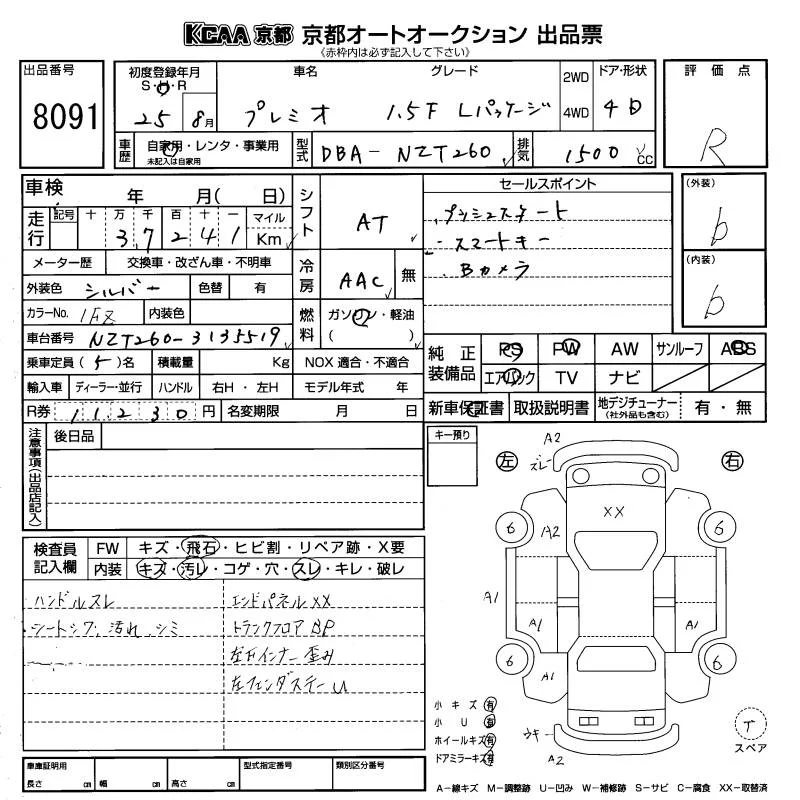 KCAA 京都 京都オートオークション 出品票
《赤枠内は必ず記入して下さい》
出品番号
8091
初度登録年月 車名 グレード 2WD ドア・形状
S・H・R
25 8月 プレミオ 1.5F Lパッケージ 4WD 4D
評価点
R
車歴 自家用・レンタ・事業用 型式 DBA-NZT260 排気 1500 CC
未記入は自家用
車検 年 月( 日)
走行 記号 十 万 千 百 十 一 マイル
37241 Km
シフト AT
メーター歴 交換車・改ざん車・不明車
冷房 AAC 無
外装色 シルバー 色替 有
カラーNo. 1F8 内装色
燃料 ガソリン・軽油
( )
車台番号 NZT260-3135519
乗車定員 (5)名 積載量 Kg NOX 適合・不適合
輸入車 ディーラー・並行 ハンドル 右H・左H モデル年式 年
R券 11230円 名変期限 月 日
セールスポイント
・プッシュスタート
・スマートキー
・Bカメラ
(外装)
b
(内装)
b
純正装備品 PS PW AW サンルーフ ABS
エアバック TV ナビ
新車保証書 取扱説明書 地デジチューナー 有・無
(社外品も含む)
注意事項(出品店記入) 後日品
キー預り
左 右
A2
ズレ
XX
6 6
A2
A1
A1 A1
6 6
A1
ウキ
A2
検査員記入欄 FW キズ・飛石・ヒビ割・リペア跡・X要
内装 キズ・汚レ・コゲ・穴・スレ・キレ・破レ
ハンドルスレ エンドパネルXX
・シートシワ、汚れ、シミ トランクフロアBP
左Fインナー歪み
左フェンダステーU
小キズ 有
小U 有
ホイールキズ 有
ドアミラーキズ 有
T
スペア
車庫証明用 型式指定番号 類別区分番号
長さ cm 幅 cm 高さ cm
A-線キズ M-調整跡 U-凹み W-補修跡 S-サビ C-腐食 XX-取替済